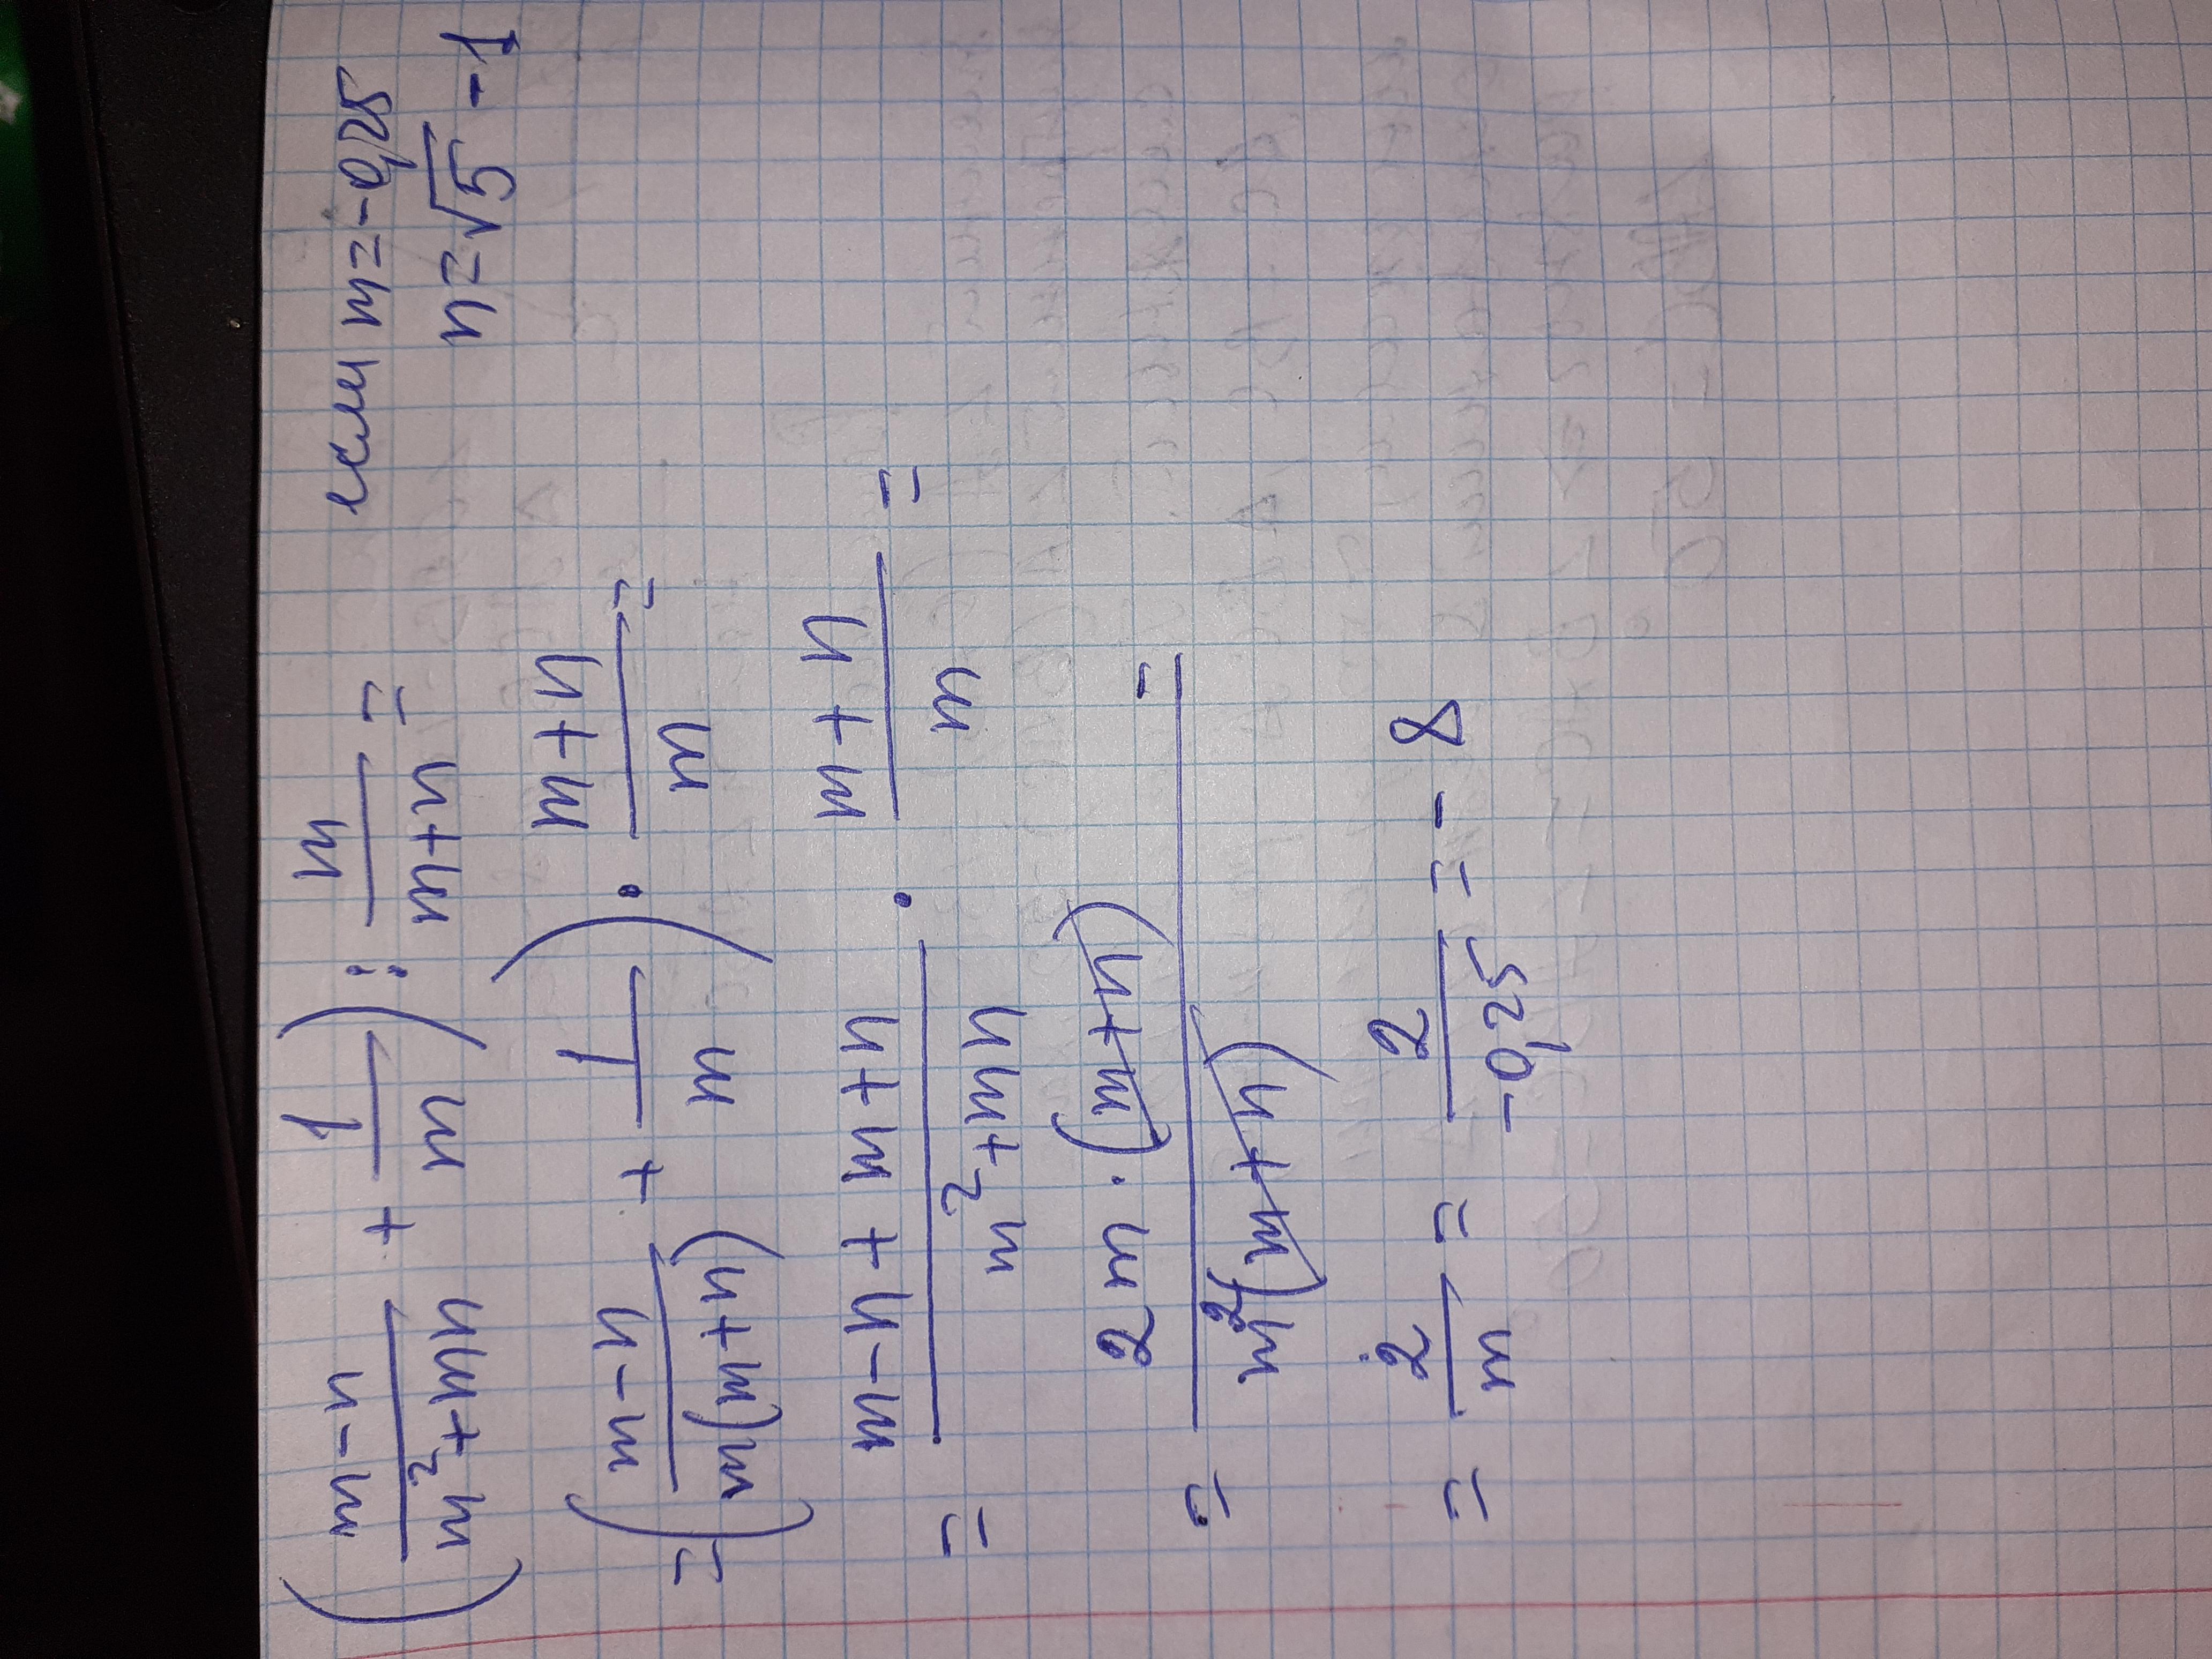 (m-n/m²+mn + 1/m) : m/m+n = если m=-0,25
n=√5 -1
=(m-n/m(m+n) + 1/m) · m+n/m =
= m-n+m+n/m²+mn · m+n/m =
= 2m·(m+n)/m²(m+n) =
= 2/m = 2/-0,25 = -8